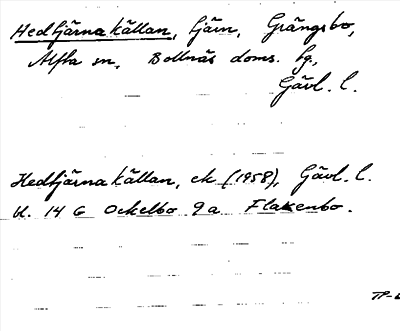 Hedtjärnakällan, tjärn, Grängsbo,
Alfta sn, Bollnäs doms. hg.,
Gävl. l.
Hedtjärnakällan, ek (1958), Gävl. l.
bl. 14 G Ockelbo 9a Flaxenbo.